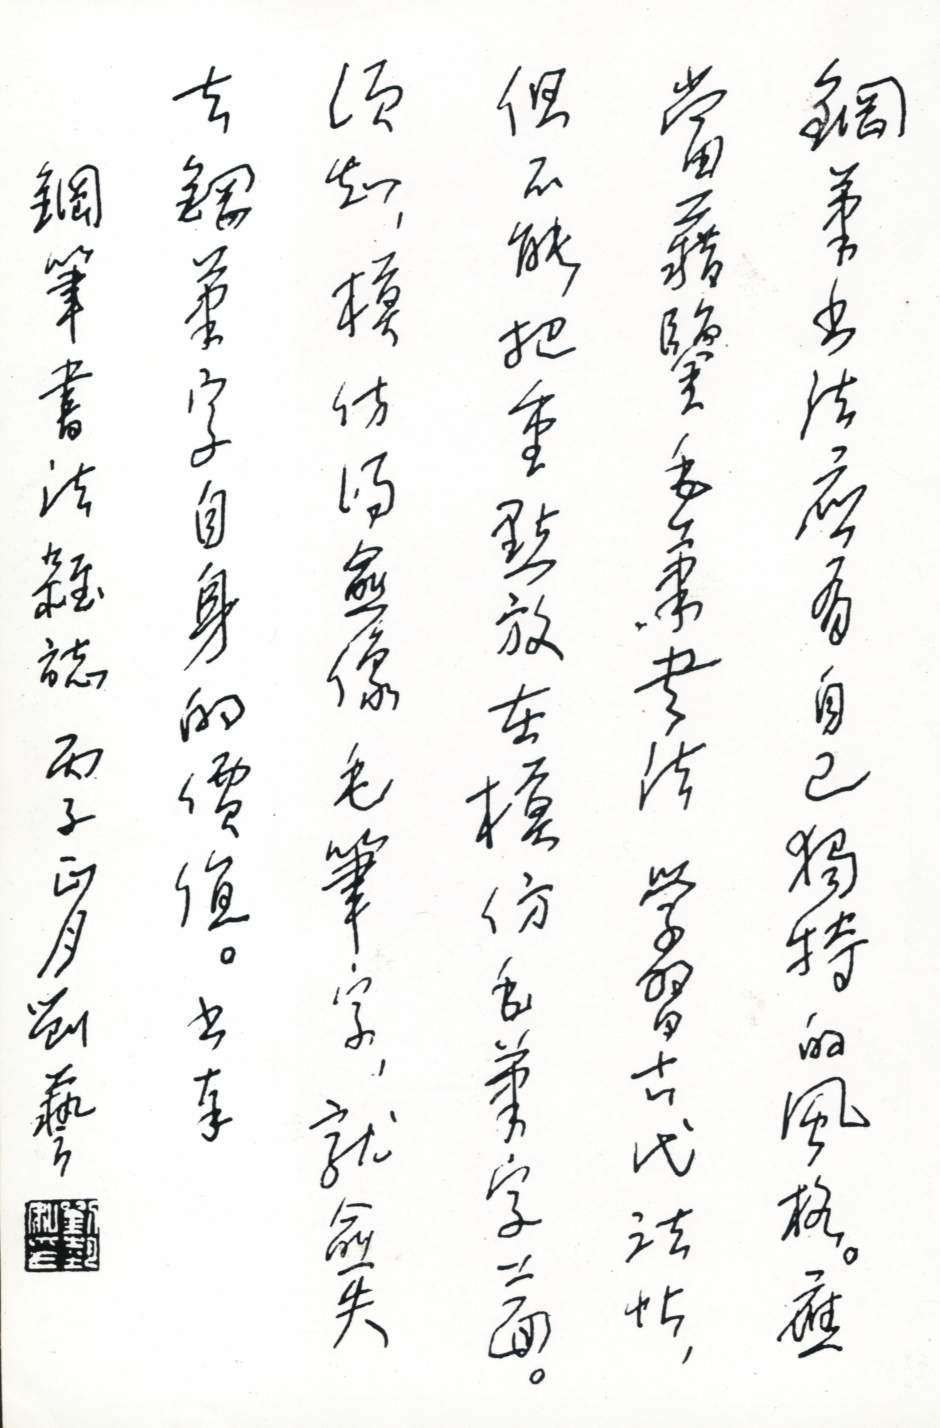 鋼筆書法應有自己獨特的風格。應
當藉鑒毛筆書法學習古代法帖，
但不能把重點放在模仿毛筆字上面。
須知，模仿得愈像毛筆字，就愈失
去鋼筆字自身的價值。書奉
鋼筆書法雜誌 丙子正月劉藝